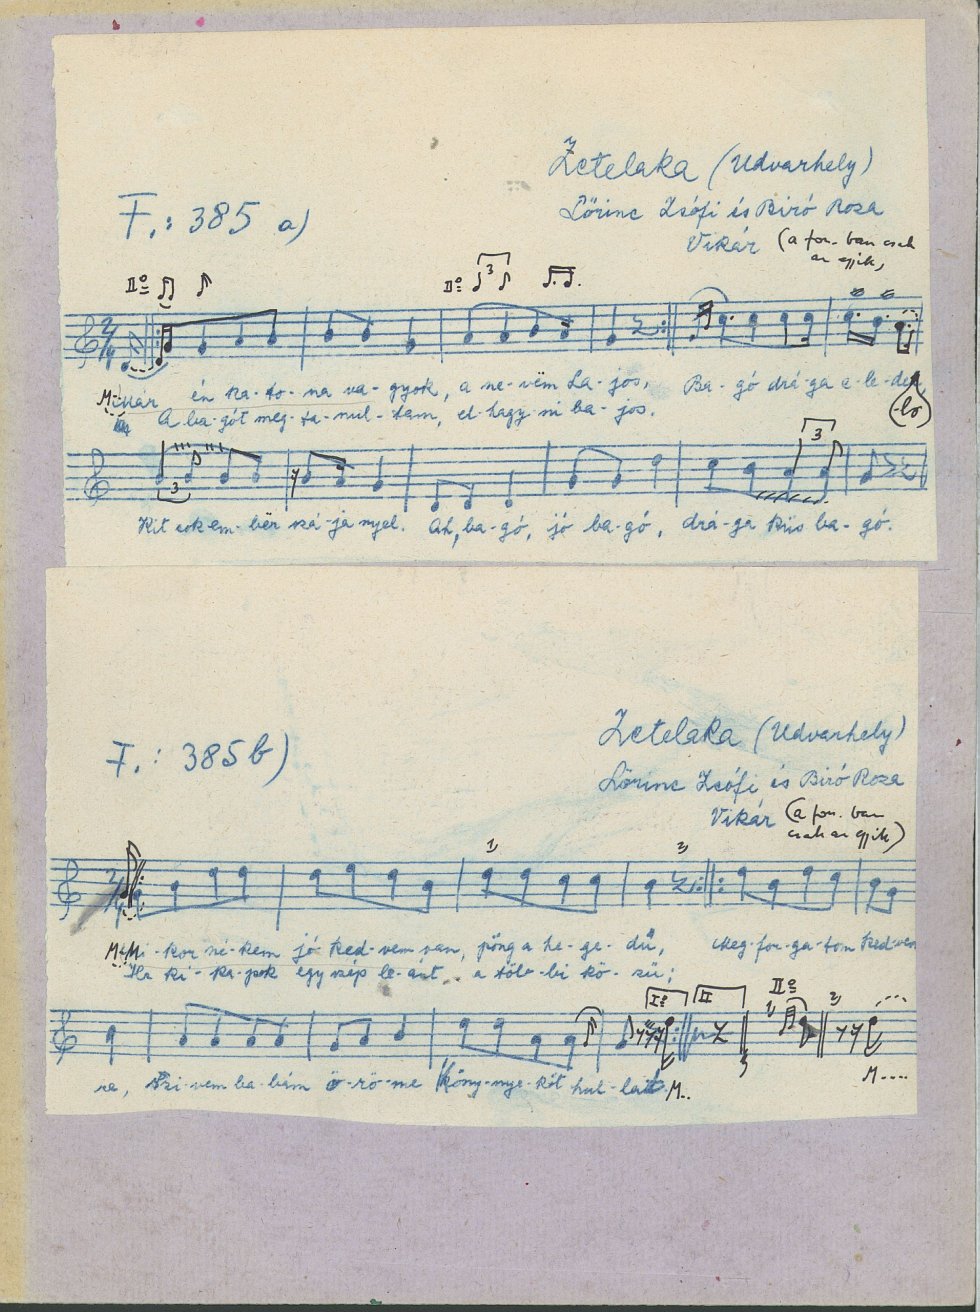 Zetelaka (Udvarhely)
F.: 385 a)
Lőrinc Zsófi és Biró Roza
Vikár (a fon. ban csak
az egyik)
IIº IIº 3
2/4
Már én ka-to-na va-gyok, a ne-vëm La-jos, Ba-gó drá-ga e-le-del
A ba-gót meg-ta-nul-tam, el-hagy-ni ba-jos. (-lö)
3 3
Kit sok em-bër szá-ja nyel. Ah, ba-gó, jó ba-gó, drá-ga kiis ba-gó.
Zetelaka (Udvarhely)
F.: 385 b)
Lőrinc Zsófi és Biró Roza
Vikár (a fon. ban
csak az egyik)
1) 2)
2/4
Mi-kor né-kem jó ked-vem van, pöng a he-ge-dű, Meg-for-ga-tom ked-vem
Ha ki-ka-pok egy szép le-ánt, a töb-bi kö-szü;
Iº II IIº 1) 2)
re, Szi-vem ba-bám ö-rö-me köny-nye-köt hul-lait. M.. M....